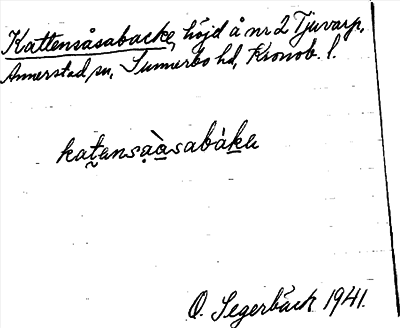 Kattensåsabacke, höjd å nr 2 Tjuvarp,
Annerstad sn, Sunnerbo hd, Kronob. l.
kat̰ansạàa̲sabák̲a
O. Segerbäck 1941.